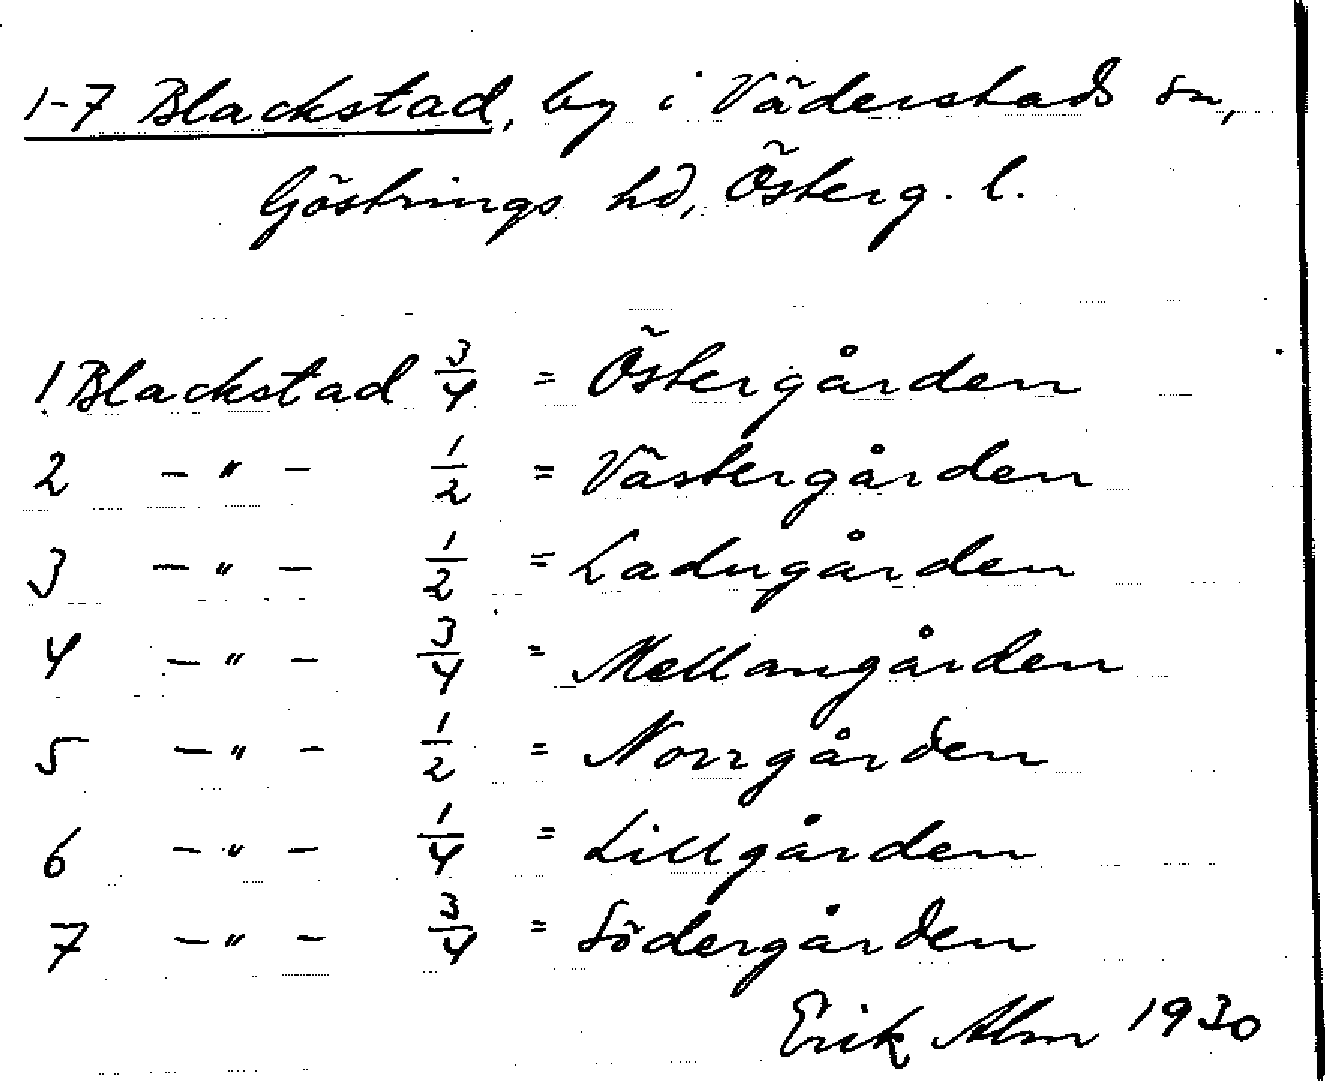 1-7 Blackstad, by i Väderstads sn,
Göstrings hd, Österg. l.
1 Blackstad 3/4 = Östergården
2 - " - 1/2 = Västergården
3 - " - 1/2 = Ladugården
4 - " - 3/4 = Mellangården
5 - " - 1/2 = Norrgården
6 - " - 1/4 = Lillgården
7 - " - 3/4 = Södergården
Erik Alm 1930